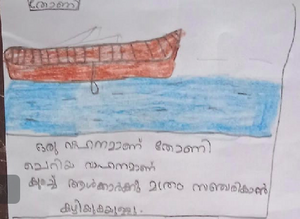 തോണി
ഒരു വാഹനമാണ് തോണി
ചെറിയ വാഹനമാണ്
കുറച്ച് ആൾക്കാർക്കു മാത്രം സഞ്ചരിക്കാൻ
കഴിയുകയുള്ളു.